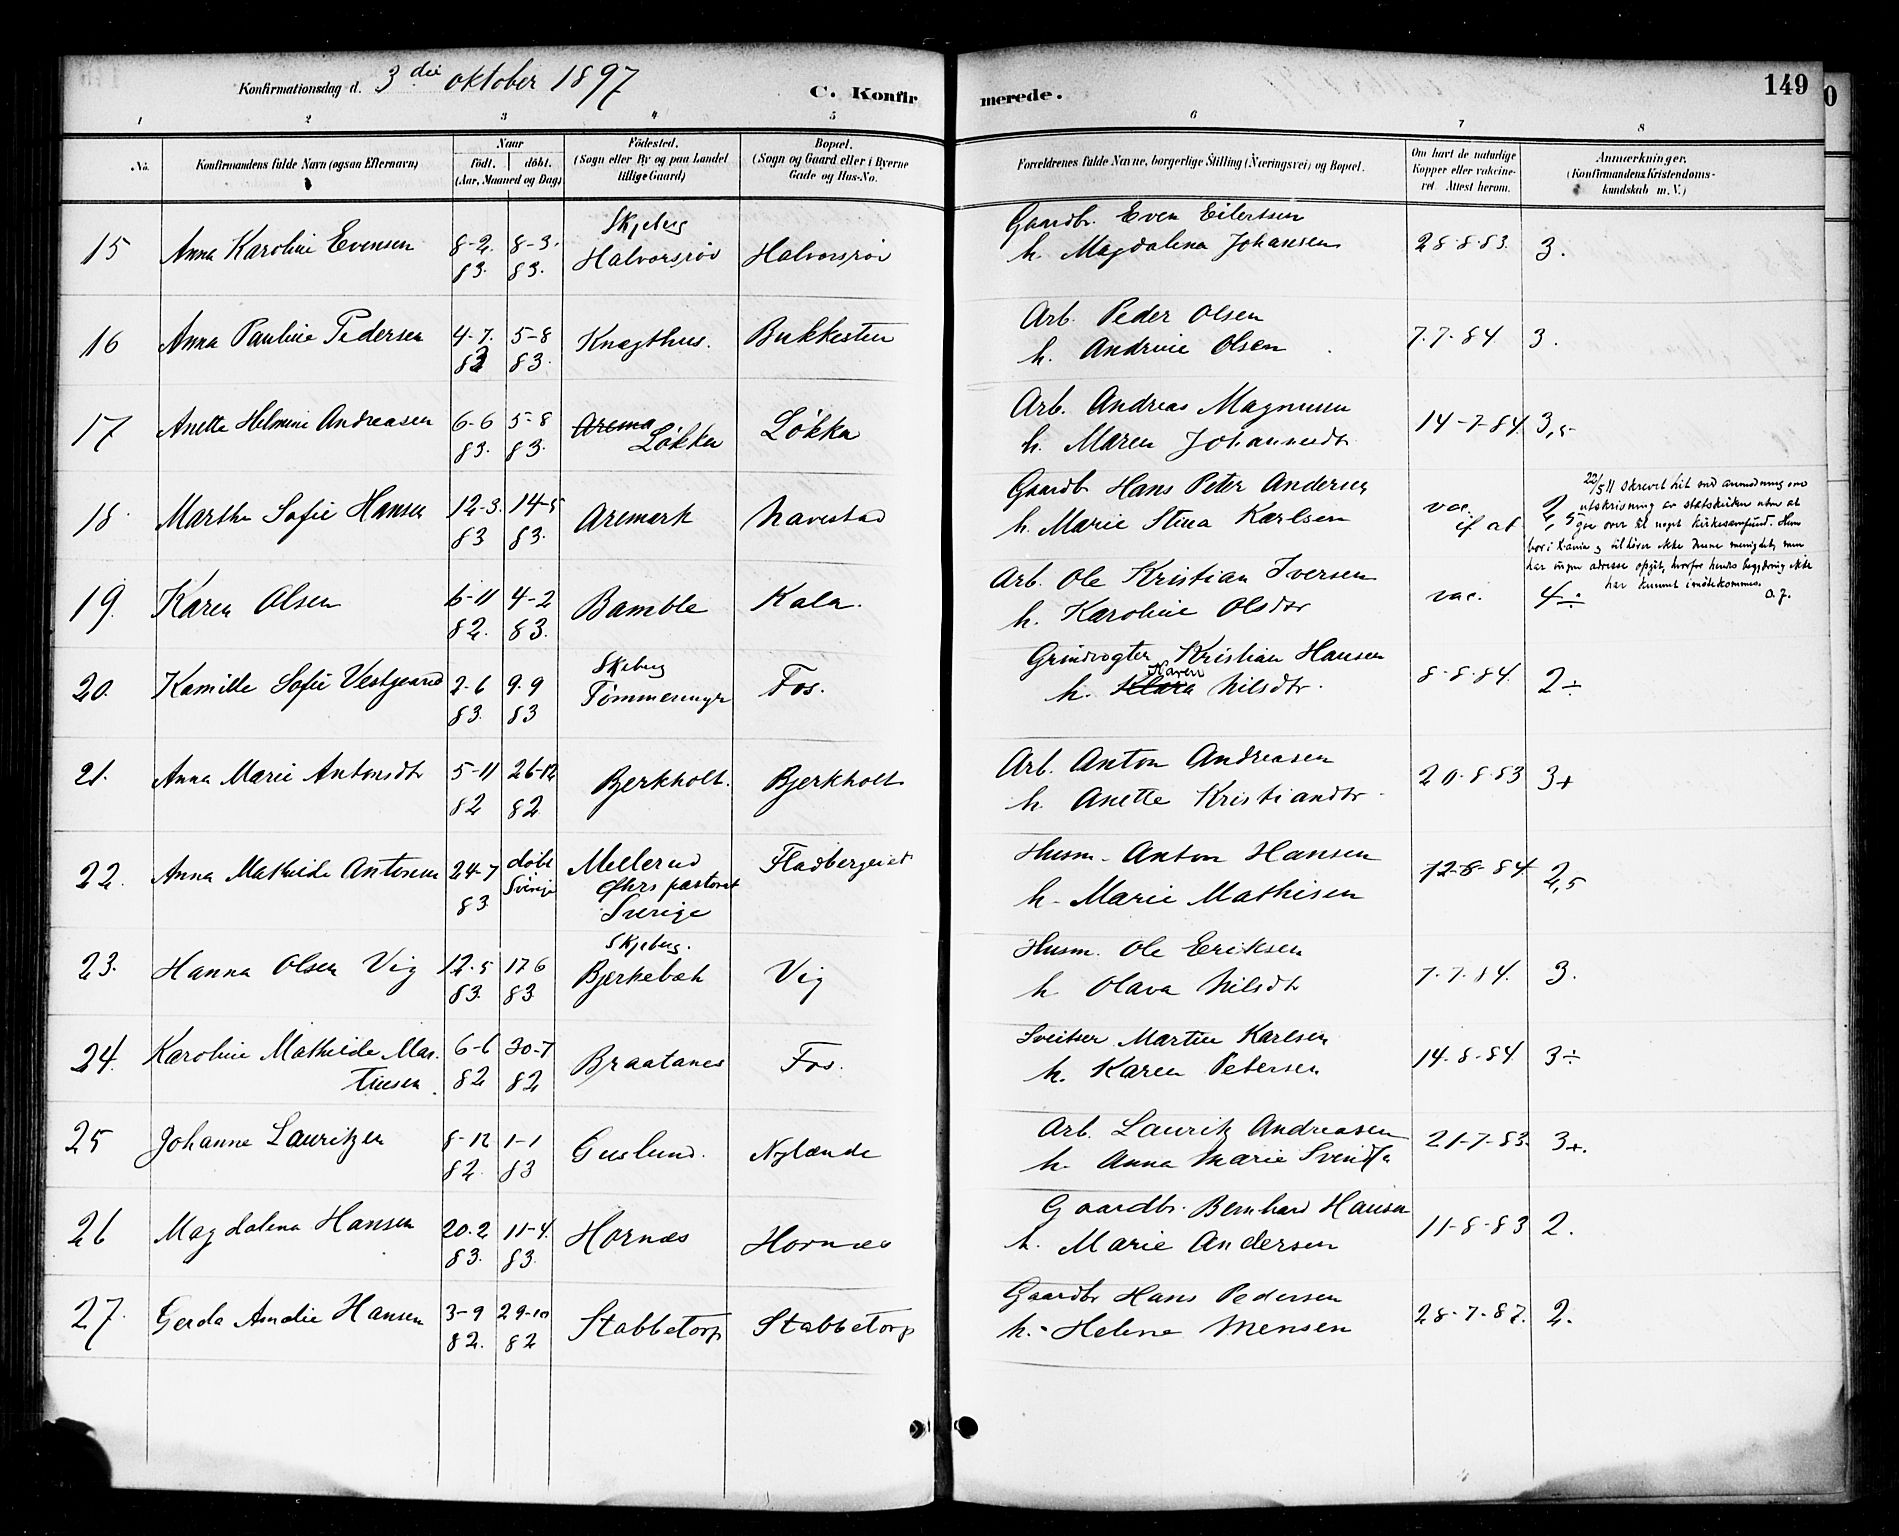 Konfirmationsdag d. 3die oktober 1897 C. Konfirmerede. 149
1 2 3 4 5 6 7 8
No. Konfirmandens fulde Navn (ogsaa Efternavn) Naar født. døbt. (Aar, Maaned og Dag) Fødested. (Sogn eller By og paa Landet tillige Gaard) Bopæl. (Sogn og Gaard eller i Byerne Gade og Hus-No. Forældrenes fulde Navne, borgerlige Stilling (Næringsvei) og Bopæl. Om havt de naturlige Kopper eller vakcinevet. Attest herom. Anmærkninger. (Konfirmandens Kristendomskundskab m. V.)
15 Anna Karoline Evensen 8-2. 83. 8-3. 83. Skjeberg Halvorsrød Halvorsrød Gaardbr. Even Eilertsen h. Magdalena Johansen 28-8-83. 3.
16 Anna Pauline Pedersen 4-7. 83 5-8 83. Knagthus. Bukkesten Arb. Peder Olsen h. Andrine Olsen 7.7-84 3.
17 Anette Helmine Andreasen 6-6 83. 5-8 83. Arema Løkka Løkka Arb. Andreas Magnusen h. Maren Johannesdtr 14-7-84 3,5
18. Marthe Sofie Hansen 12-3. 83 14-5 83. Aremark Navestad Gaardb. Hans Peter Andersen h. Marie Stina Karlsen vac. if. at 2,5
22/5 11 skrevet hit om anmodning om
utskrivning av statskirken uten at
gaa over til noget kirkesamfund. Hun
bor i Kr.ania og tilhører ikke denne menighet, men
har ingen adresse opgit, hvorfor hendes begjæring ikke
har kunnet imøtekommes.
O.J.
19. Karen Olsen 6-11 82. 4-2 83. Bamble Kala. Arb. Ole Kristian Iversen h. Karoline Olsdtr vac. 4÷
20. Kamille Sofie Vestgaard 2-6 83. 9.9 83 Skjeberg Tømmermyr Fos. Grindvogter Kristian Hansen h. Klara Karen Nilsdtr. 8-8-84. 2÷
21. Anna Marie Antonsdtr 5-11 82 26-12 82. Bjerkholt. Bjerkholt Arb. Anton Andreasen h. Anette Kristiandtr 20-8-83 3+
22. Anna Mathilde Antonsen 24-7 83 døbt Sverige Mellerud pastorat Sverige Fladbergeiet Husm. Anton Hansen h. Marie Mathisen 12-8-84 2,5
23. Hanna Olsen Vig 12.5 83. 17 6 83 Skjeberg. Bjerkebæk Vig Husm. Ole Eriksen h. Olava Nilsdtr 7-7-84. 3.
24. Karoline Mathilde Martinsen 6-6 82 30-7 82 Braatanes Fos. Sveitser Martin Karlsen h. Karen Petersen 14-8-84 3÷
25 Johanne Lauritzen 8-12 82. 1-1 83 Guslund. Nylænde Arb. Lauritz Andreasen h. Anna Marie 21-7-83. 3+.
26 Magdalena Hansen 20.2 83. 11-4. 83. Hornæs Hornæs Gaardbr. Bernhard Hansen h. Marie Andersen 11-8-83 2.
27. Gerda Amalie Hansen 3-9 82. 29-10 82 Stabbetorp Stabbetorp Gaardbr Hans Pedersen h. Helene Mensen 28-7-87. 2.